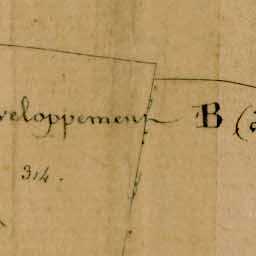 veloppement B (
314.